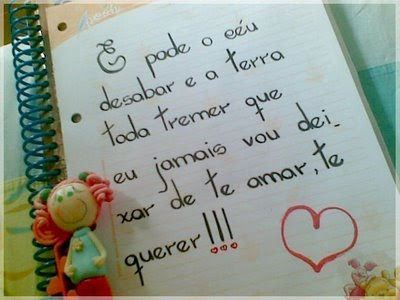 E pode o céu
desabar e a terra
toda tremer que
eu jamais vou dei_
xar de te amar, te
querer!!!